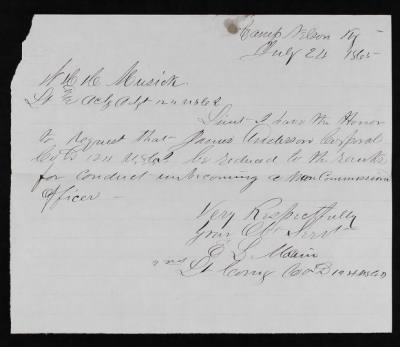 Camp Nelson Ky
July 24 1865
Lt & Act Adjt 124 USCI
Lieut I have the Honor
to request that James Anderson Corporal
Co D 124 USCI be reduced to the ranks
for conduct unbecoming a Non Commission
Officer
Very Respectfully
Your Obt Servt
Lt Comg Co D 124 USCI